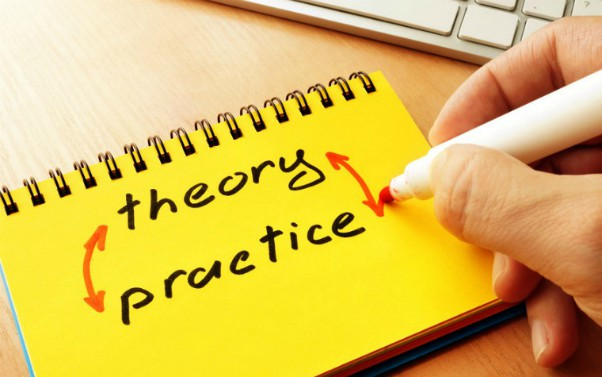 theory
practice